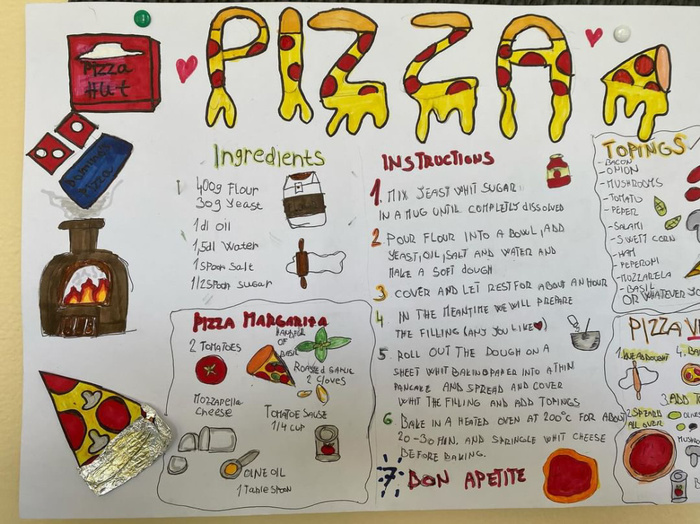 PIZZA
Pizza
Hut
Domino's
Pizza
Ingredients
400g Flour
30g Yeast
1dl oil
1,5dl Water
1 spoon salt
1/2 spoon sugar
INSTRUCTIONS
1. MIX YEAST WHIT SUGAR
IN A MUG UNTIL COMPLETLY DISSOLVED
2 POUR FLOUR INTO A BOWL, ADD
YEAST, OIL, SALT AND WATER AND
MAKE A SOFT DOUGH
3 COVER AND LET REST FOR ABOUT AN HOUR
4 IN THE MEANTIME WE WILL PREPARE
THE FILLING (ANY YOU LIKE♥)
5. ROLL OUT THE DOUGH ON A
SHEET WHIT BAKING PAPER INTO A THIN
PANCAKE AND SPREAD AND COVER
WHIT THE FILLING AND ADD TOPINGS
6 BAKE IN A HEATED OVEN AT 200°C FOR ABOUT
20-30 MIN. AND SPRINGLE WHIT CHEESE
BEFORE BAKING.
7 BON APETITE
TOPINGS
- BACON
- ONION
- MUSHROOMS
- TOMATO
- PEPER
- SALAMI
- SWETT CORN
- HAM
- PEPERONI
- MOZZARELA
- BASIL
OR WHATEVER YO
PIZZA MARGARITA
2 TOMATOES
HANDFULL
OF
BASIL
ROASTED GARLIC
2 CLOVES
Mozzarella
cheese
TOMATOE SAUSE
1/4 CUP
OLIVE OIL
1 Table spoon
PIZZA V
1.
4.
3. ADD TO
2 SPREAD
ALL OVER
OLIVES